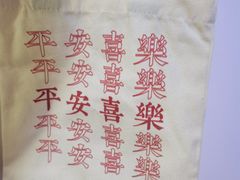 平安喜樂
平安喜樂
平安喜樂
平安喜樂
平安喜樂